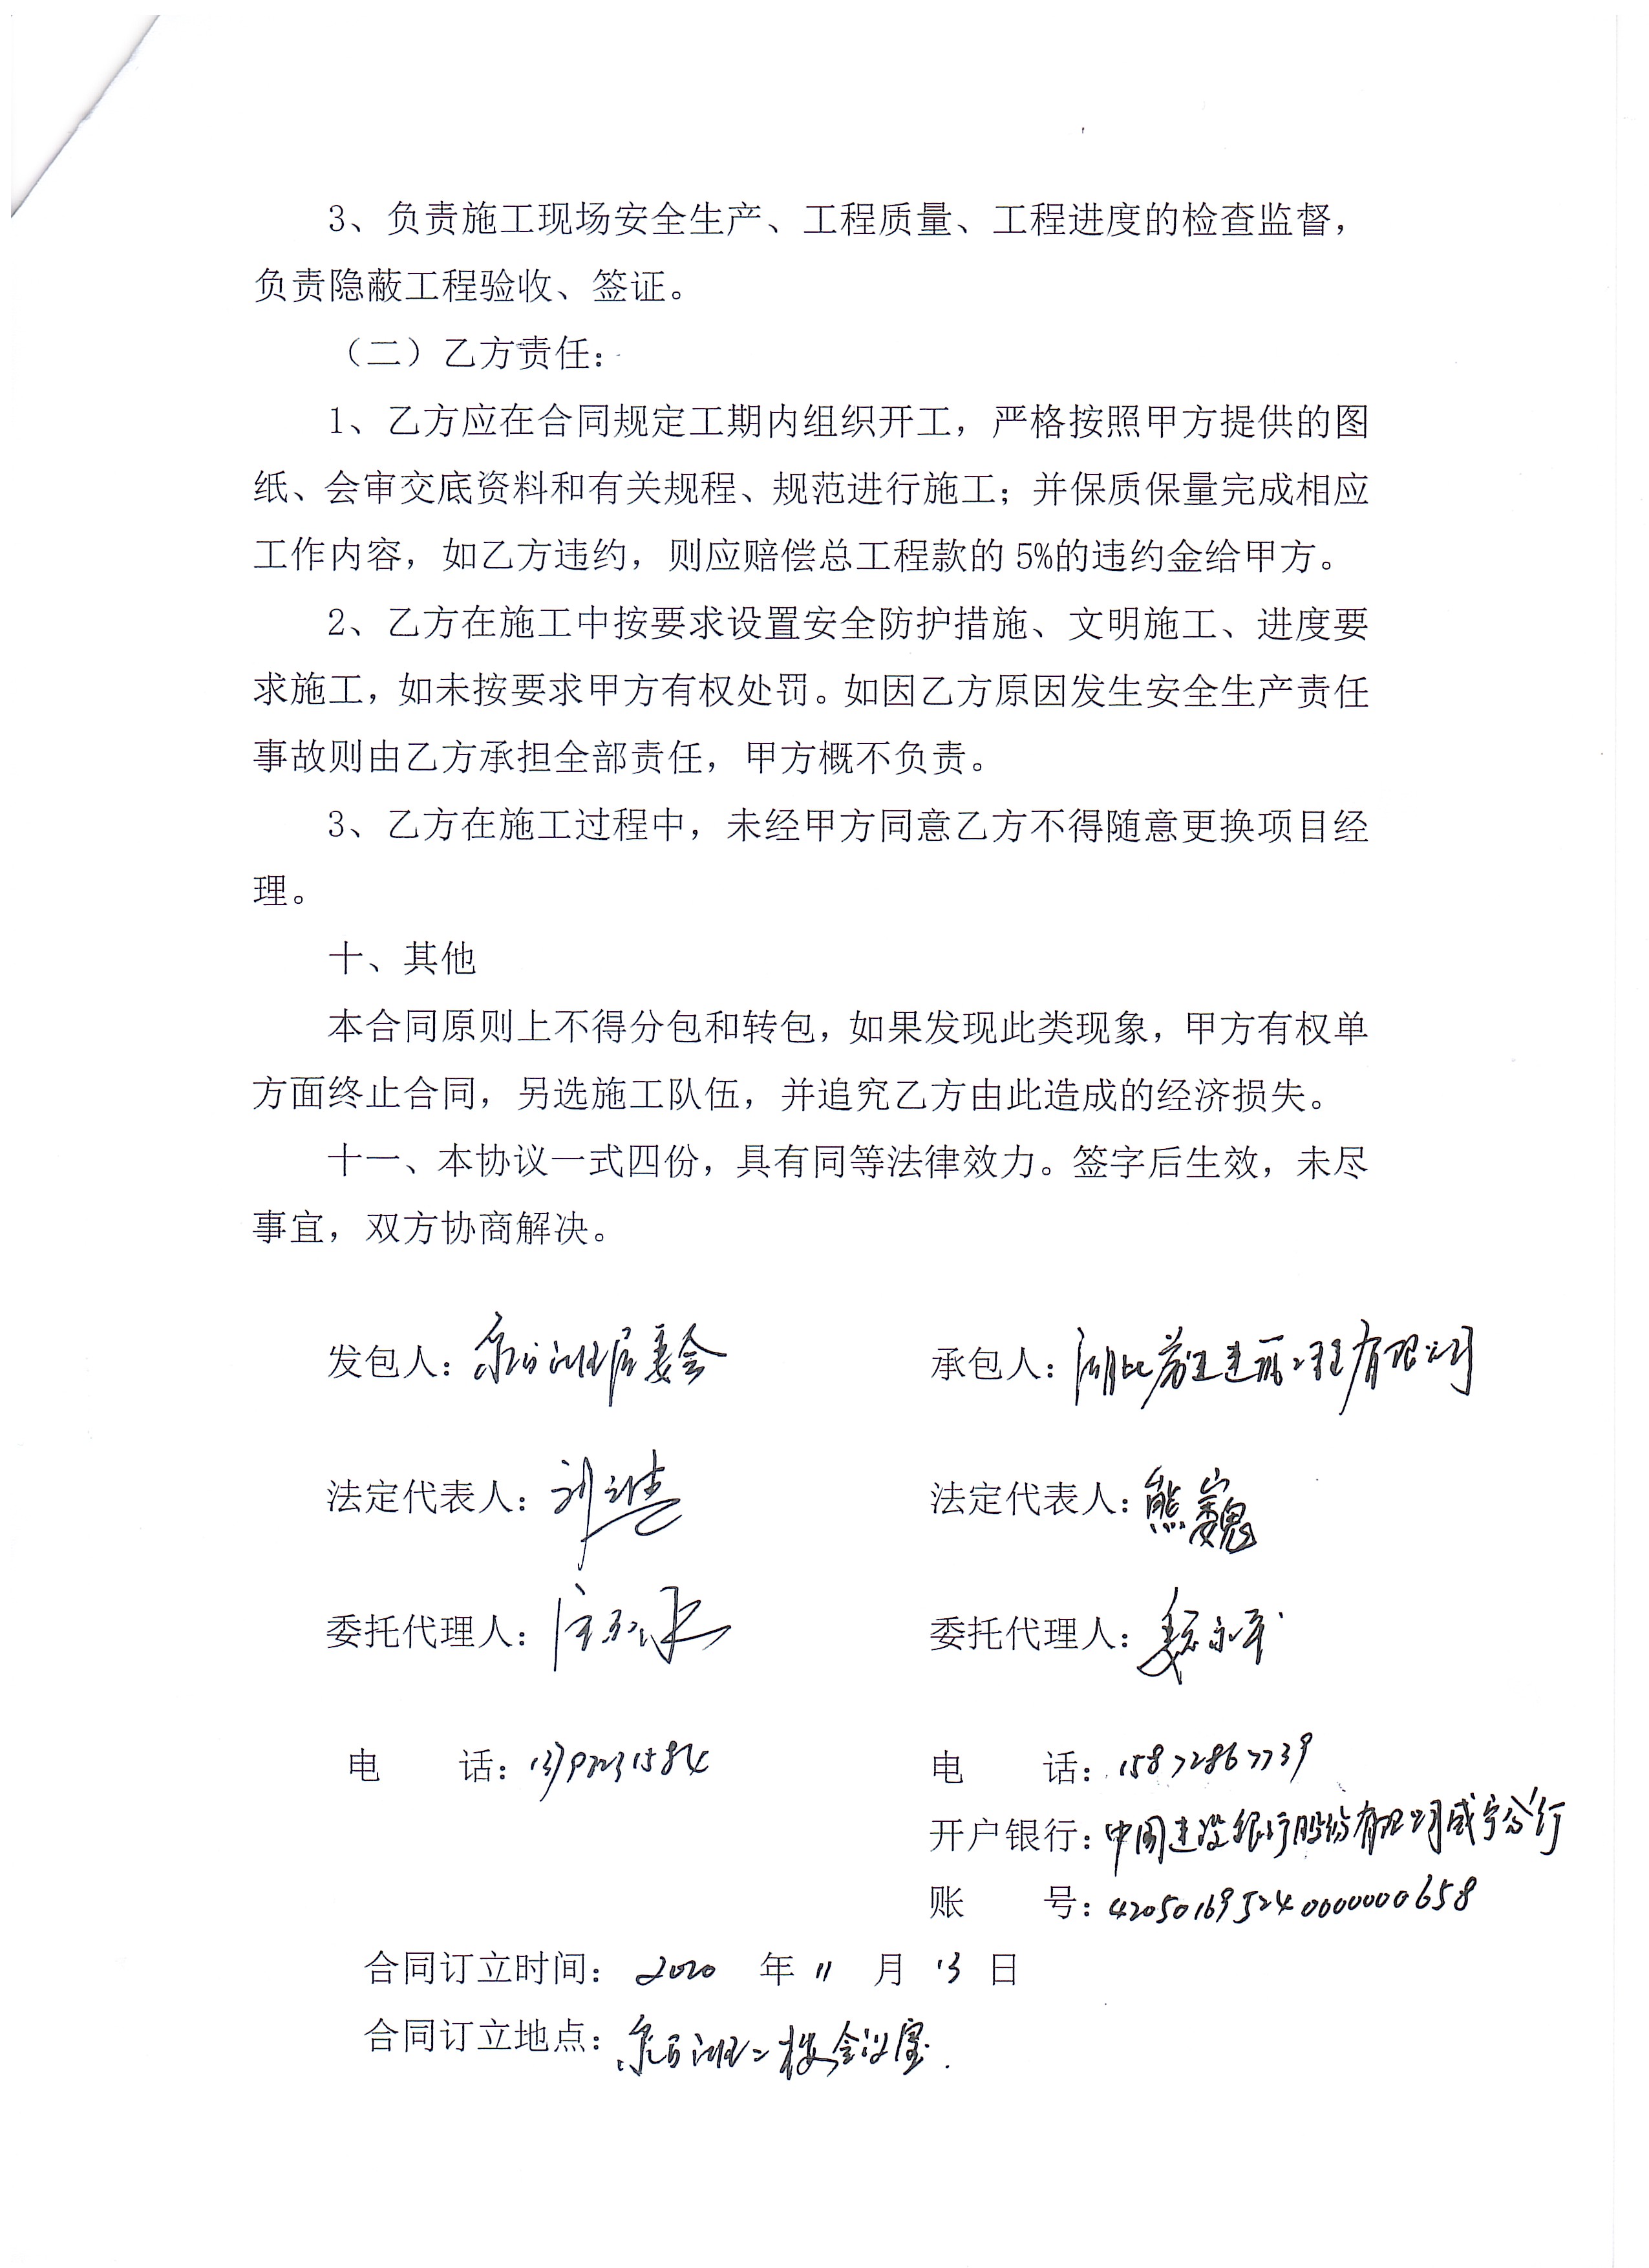 3、负责施工现场安全生产、工程质量、工程进度的检查监督，
负责隐蔽工程验收、签证。
（二）乙方责任：
1、乙方应在合同规定工期内组织开工，严格按照甲方提供的图
纸、会审交底资料和有关规程、规范进行施工；并保质保量完成相应
工作内容，如乙方违约，则应赔偿总工程款的 5%的违约金给甲方。
2、乙方在施工中按要求设置安全防护措施、文明施工、进度要
求施工，如未按要求甲方有权处罚。如因乙方原因发生安全生产责任
事故则由乙方承担全部责任，甲方概不负责。
3、乙方在施工过程中，未经甲方同意乙方不得随意更换项目经
理。
十、其他
本合同原则上不得分包和转包，如果发现此类现象，甲方有权单
方面终止合同，另选施工队伍，并追究乙方由此造成的经济损失。
十一、本协议一式四份，具有同等法律效力。签字后生效，未尽
事宜，双方协商解决。
发包人： 居委会 承包人：湖北 建筑工程有限公司
法定代表人： 法定代表人：熊巍
委托代理人： 委托代理人：魏永平
电 话： 电 话：15872867739
开户银行：中国建设银行股份有限公司咸宁分行
账 号：42050169524000000658
合同订立时间： 2020 年 11 月 13 日
合同订立地点： 二楼会议室.